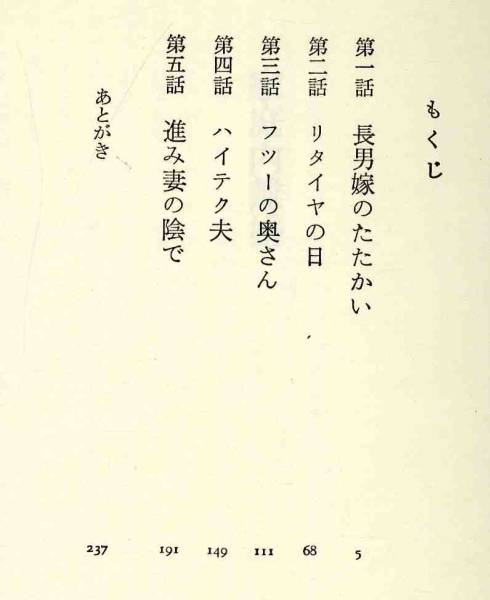 もくじ
第一話 長男嫁のたたかい 5
第二話 リタイヤの日 68
第三話 フツーの奥さん 111
第四話 ハイテク夫 149
第五話 進み妻の陰で 191
あとがき 237